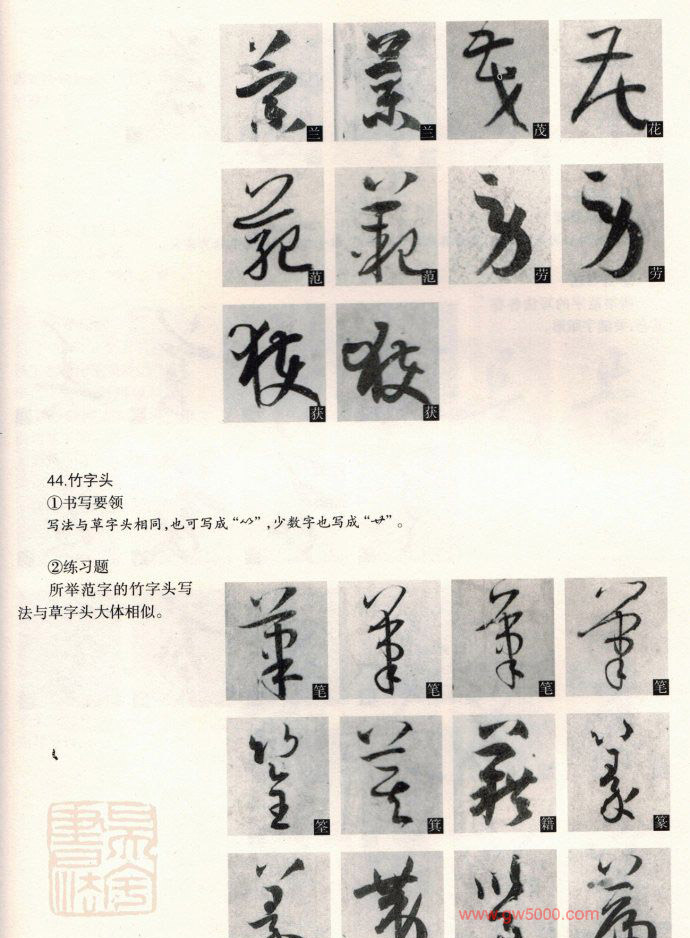 兰 兰 茂 花
范 范 劳 劳
获 获
44.竹字头
①书写要领
写法与草字头相同,也可写成“”,少数字也写成“”。
②练习题
所举范字的竹字头写
法与草字头大体相似。
笔 笔 笔 笔
筌 箕 籍 篆
www.gw5000.com